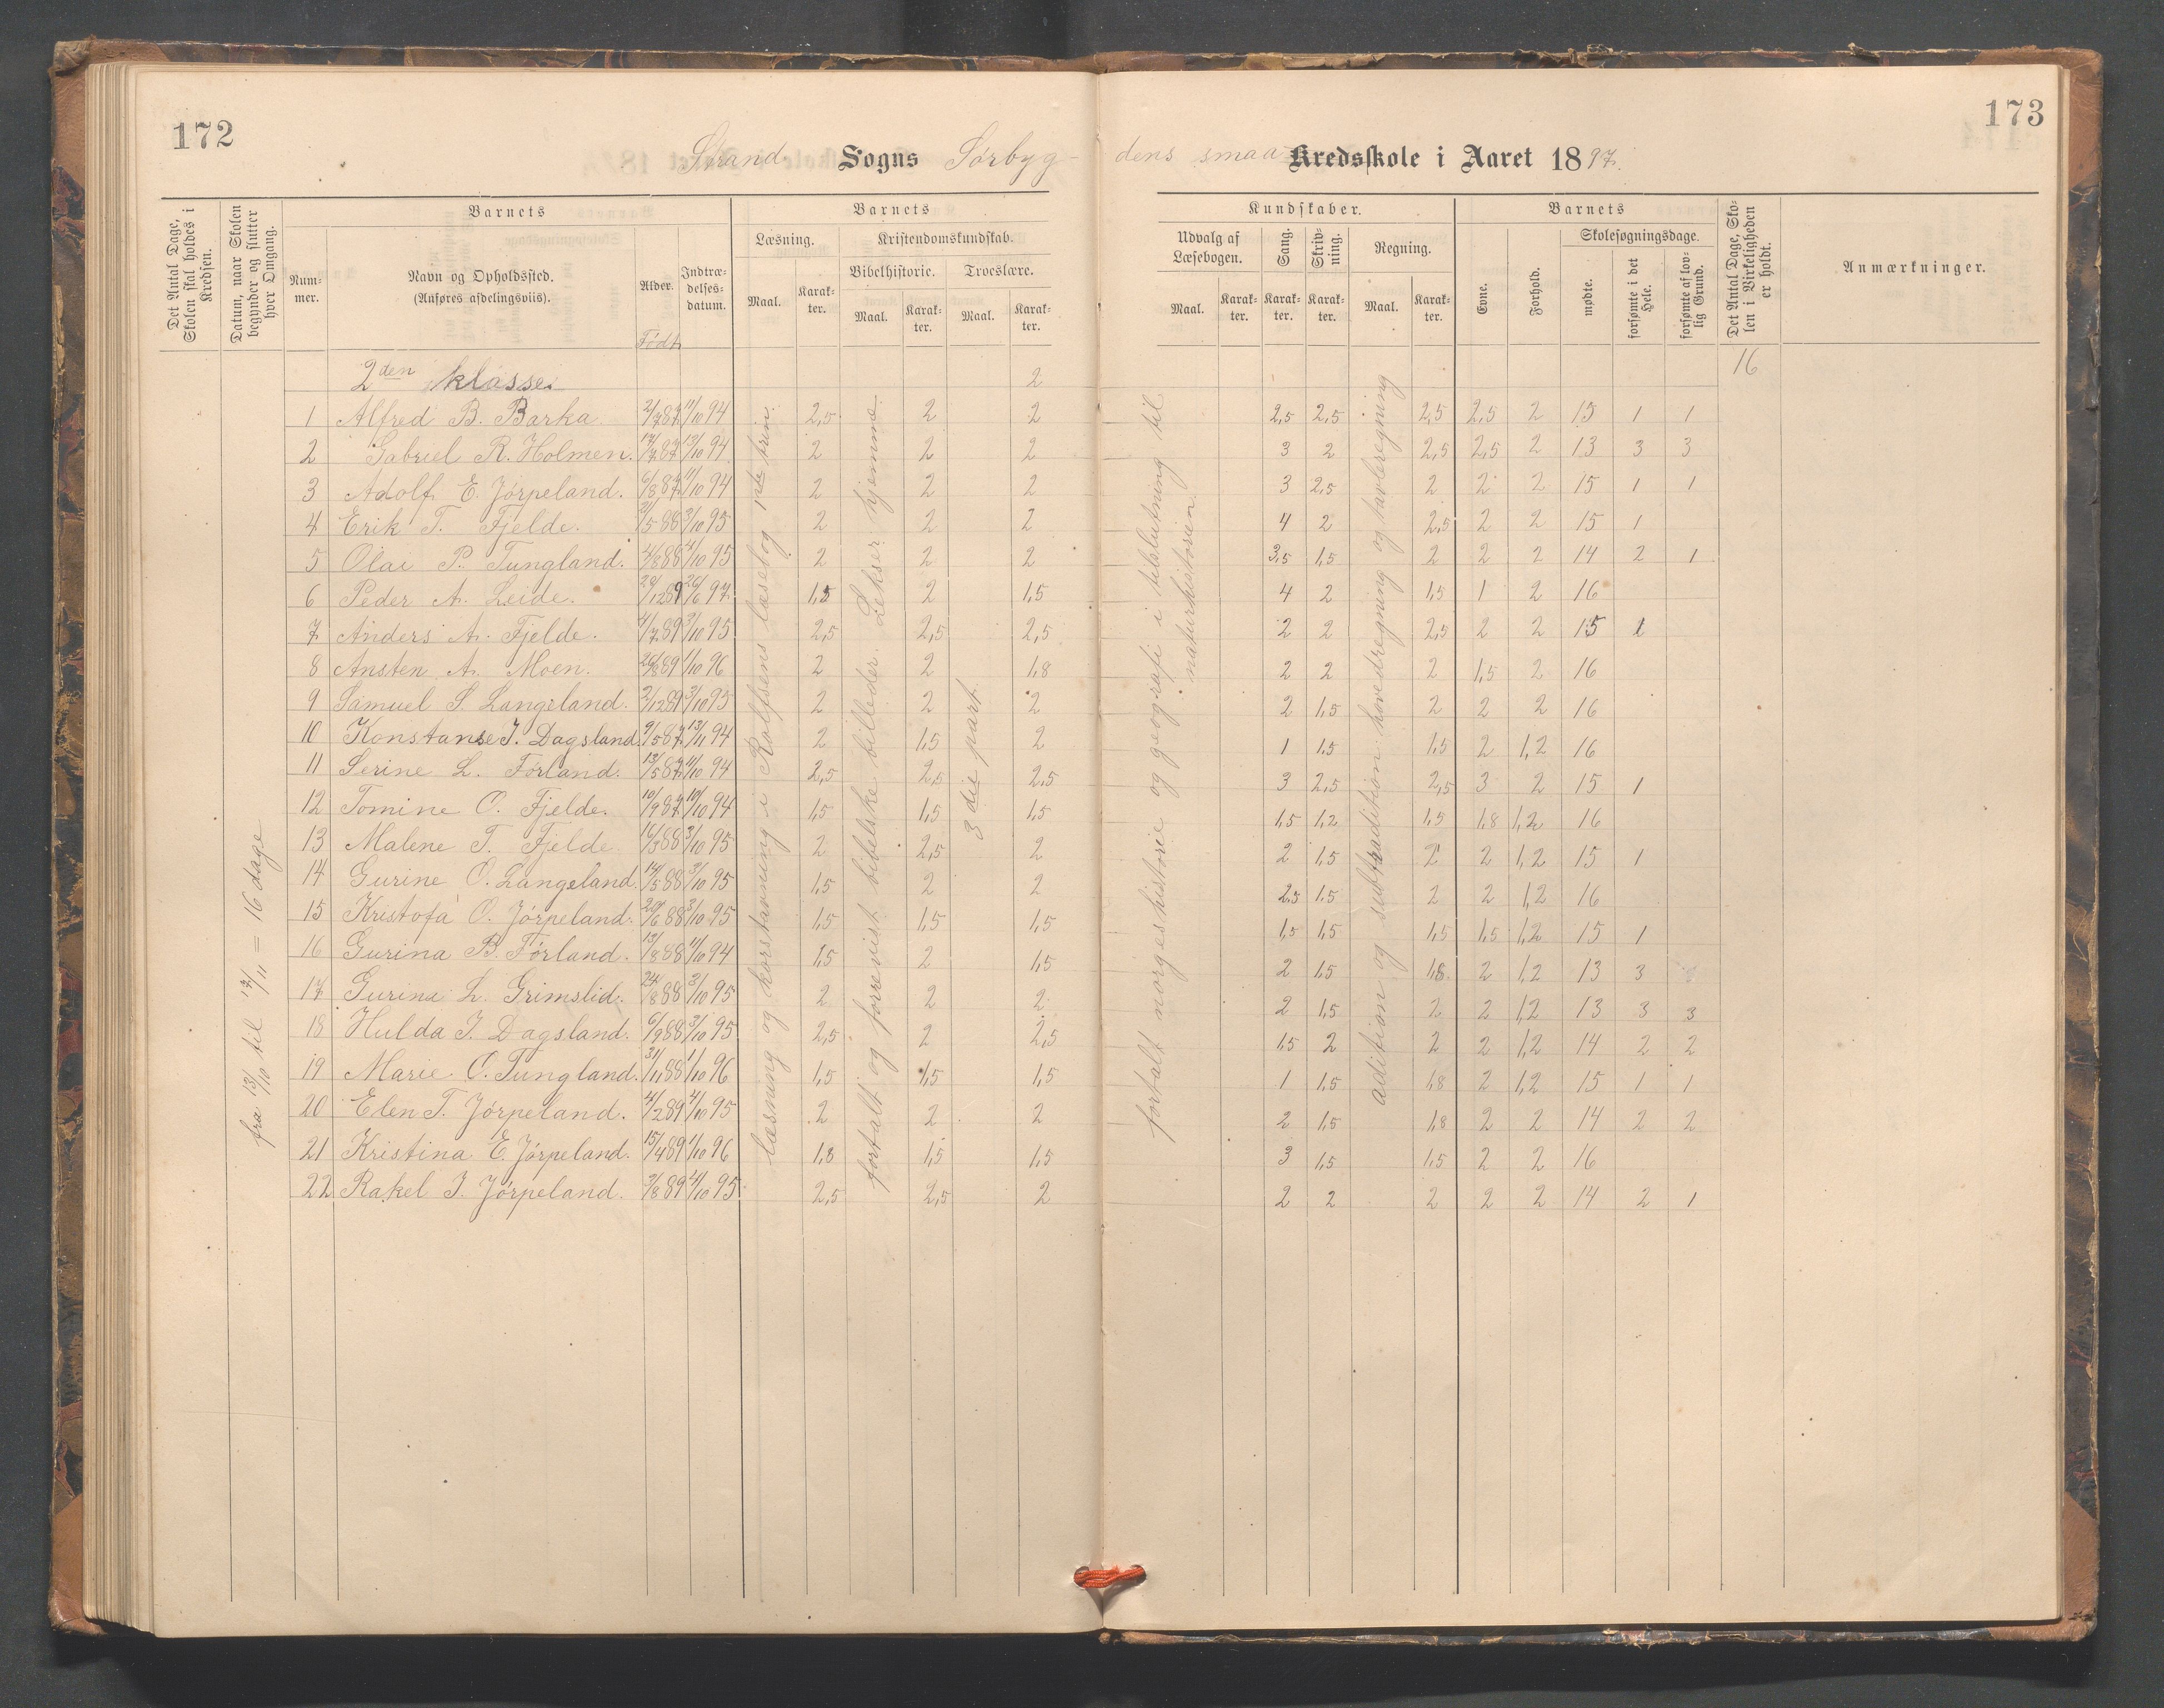 172
173
Strand Sogns Sørbyg- dens smaa Kredsskole i Aaret 1897.
Det Antal Dage, Skolen skal holdes i Kredsen.
Datum, naar Skolen begynder og slutter hver Omgang.
Barnets
Num-mer.
Navn og Opholdssted.
(Anføres afdelingsviis).
Alder.
Født
Indtræ-delses-datum.
Barnets
Læsning.
Maal.
Karak-ter.
Kristendomskundskab.
Bibelhistorie.
Troeslære.
Maal.
Karak-ter.
Maal.
Karak-ter.
Kundskaber.
Udvalg af Læsebogen.
Maal.
Karak-ter.
Sang.
Karak-ter.
Skriv-ning.
Karak-ter.
Regning.
Maal.
Karak-ter.
Barnets
Evne.
Forhold.
Skolesøgningsdage.
mødte.
forsømte i det Hele.
forsømte af lov-lig Grund.
Det Antal Dage, Sko-len i Virkeligheden er holdt.
Anmærkninger.
2den klasse. 2 16
1 Alfred B. Barka 2/7 87 11/10 94 2,5 2 2 2,5 2,5 2,5 2,5 2 15 1 1
2 Gabriel R. Holmen. 17/7 87 13/10 94 2 2 2 3 2 2,5 2,5 2 13 3 3
3 Adolf E. Jørpeland. 6/8 87 11/10 94 2 2 2 3 2,5 2 2 2 15 1 1
4 Erik T. Fjelde. 21/5 88 3/10 95 2 2 2 4 2 2,5 2 2 15 1
5 Olai P. Tungland. 4/8 88 4/10 95 2 2 2 3,5 1,5 2 2 2 14 2 1
6 Peder A. Leide. 29/12 89 26/6 97 1,5 2 1,5 4 2 1,5 1 2 16
7 Anders A. Fjelde. 4/7 89 3/10 95 2,5 2,5 2,5 2 2 2,5 2 2 15 1
8 Ansten A. Moen. 26/8 89 1/10 96 2 2 1,8 2 2 2 1,5 2 16
9 Samuel S. Langeland. 2/12 89 3/10 95 2 2 2 2 1,5 2 2 2 16
10 Konstanse J. Dagsland. 9/5 87 13/11 94 2 1,5 2 1 1,5 1,5 2 1,2 16
11 Serine L. Førland. 13/5 87 11/10 94 2,5 2,5 2,5 3 2,5 2,5 3 2 15 1
12 Tomine O. Fjelde. 10/9 87 19/10 94 1,5 1,5 1,5 1,5 1,2 1,5 1,8 1,2 16
13 Malene T. Fjelde 16/3 88 3/10 95 2 2,5 2 2 1,5 2 2 1,2 15 1
14 Gurine O. Langeland. 14/5 88 3/10 95 1,5 2 2 2,5 1,5 2 2 1,2 16
15 Kristofa O. Jørpeland. 20/6 88 3/10 95 1,5 1,5 1,5 1,5 1,5 1,5 1,5 1,2 15 1
16 Gurina B. Førland. 13/8 88 11/10 94 1,5 2 1,5 2 1,5 1,8 2 1,2 13 3
17 Gurina L. Grimslid. 24/8 88 3/10 95 2 2 2 2 1,5 2 2 1,2 13 3 3
18 Hulda J. Dagsland. 6/9 88 3/10 95 2,5 2 2,5 1,5 2 2 2 1,2 14 2 2
19 Marie O. Tungland. 31/11 88 1/10 96 1,5 1,5 1,5 1 1,5 1,8 2 1,2 15 1 1
20 Elen T. Jørpeland. 4/2 89 4/10 95 2 2 2 2 1,5 1,8 2 2 14 2 2
21 Kristina E. Jørpeland. 15/4 89 1/10 96 1,8 1,5 1,5 3 1,5 1,5 2 2 16
22 Rakel J. Jørpeland. 3/8 89 4/10 95 2,5 2,5 2 2 2 2 2 2 14 2 1
fra 13/10 til 17/11 = 16 dage
læsning og korstavning i Rolfsens læsebog 1ste trin.
fortalt og forrevist bibelske billeder. Lekser hjemme
3die part
fortalt norgeshistorie og geografi i tilslutning til
naturhistorien
adition og subtradition. hovedregning og tavleregning